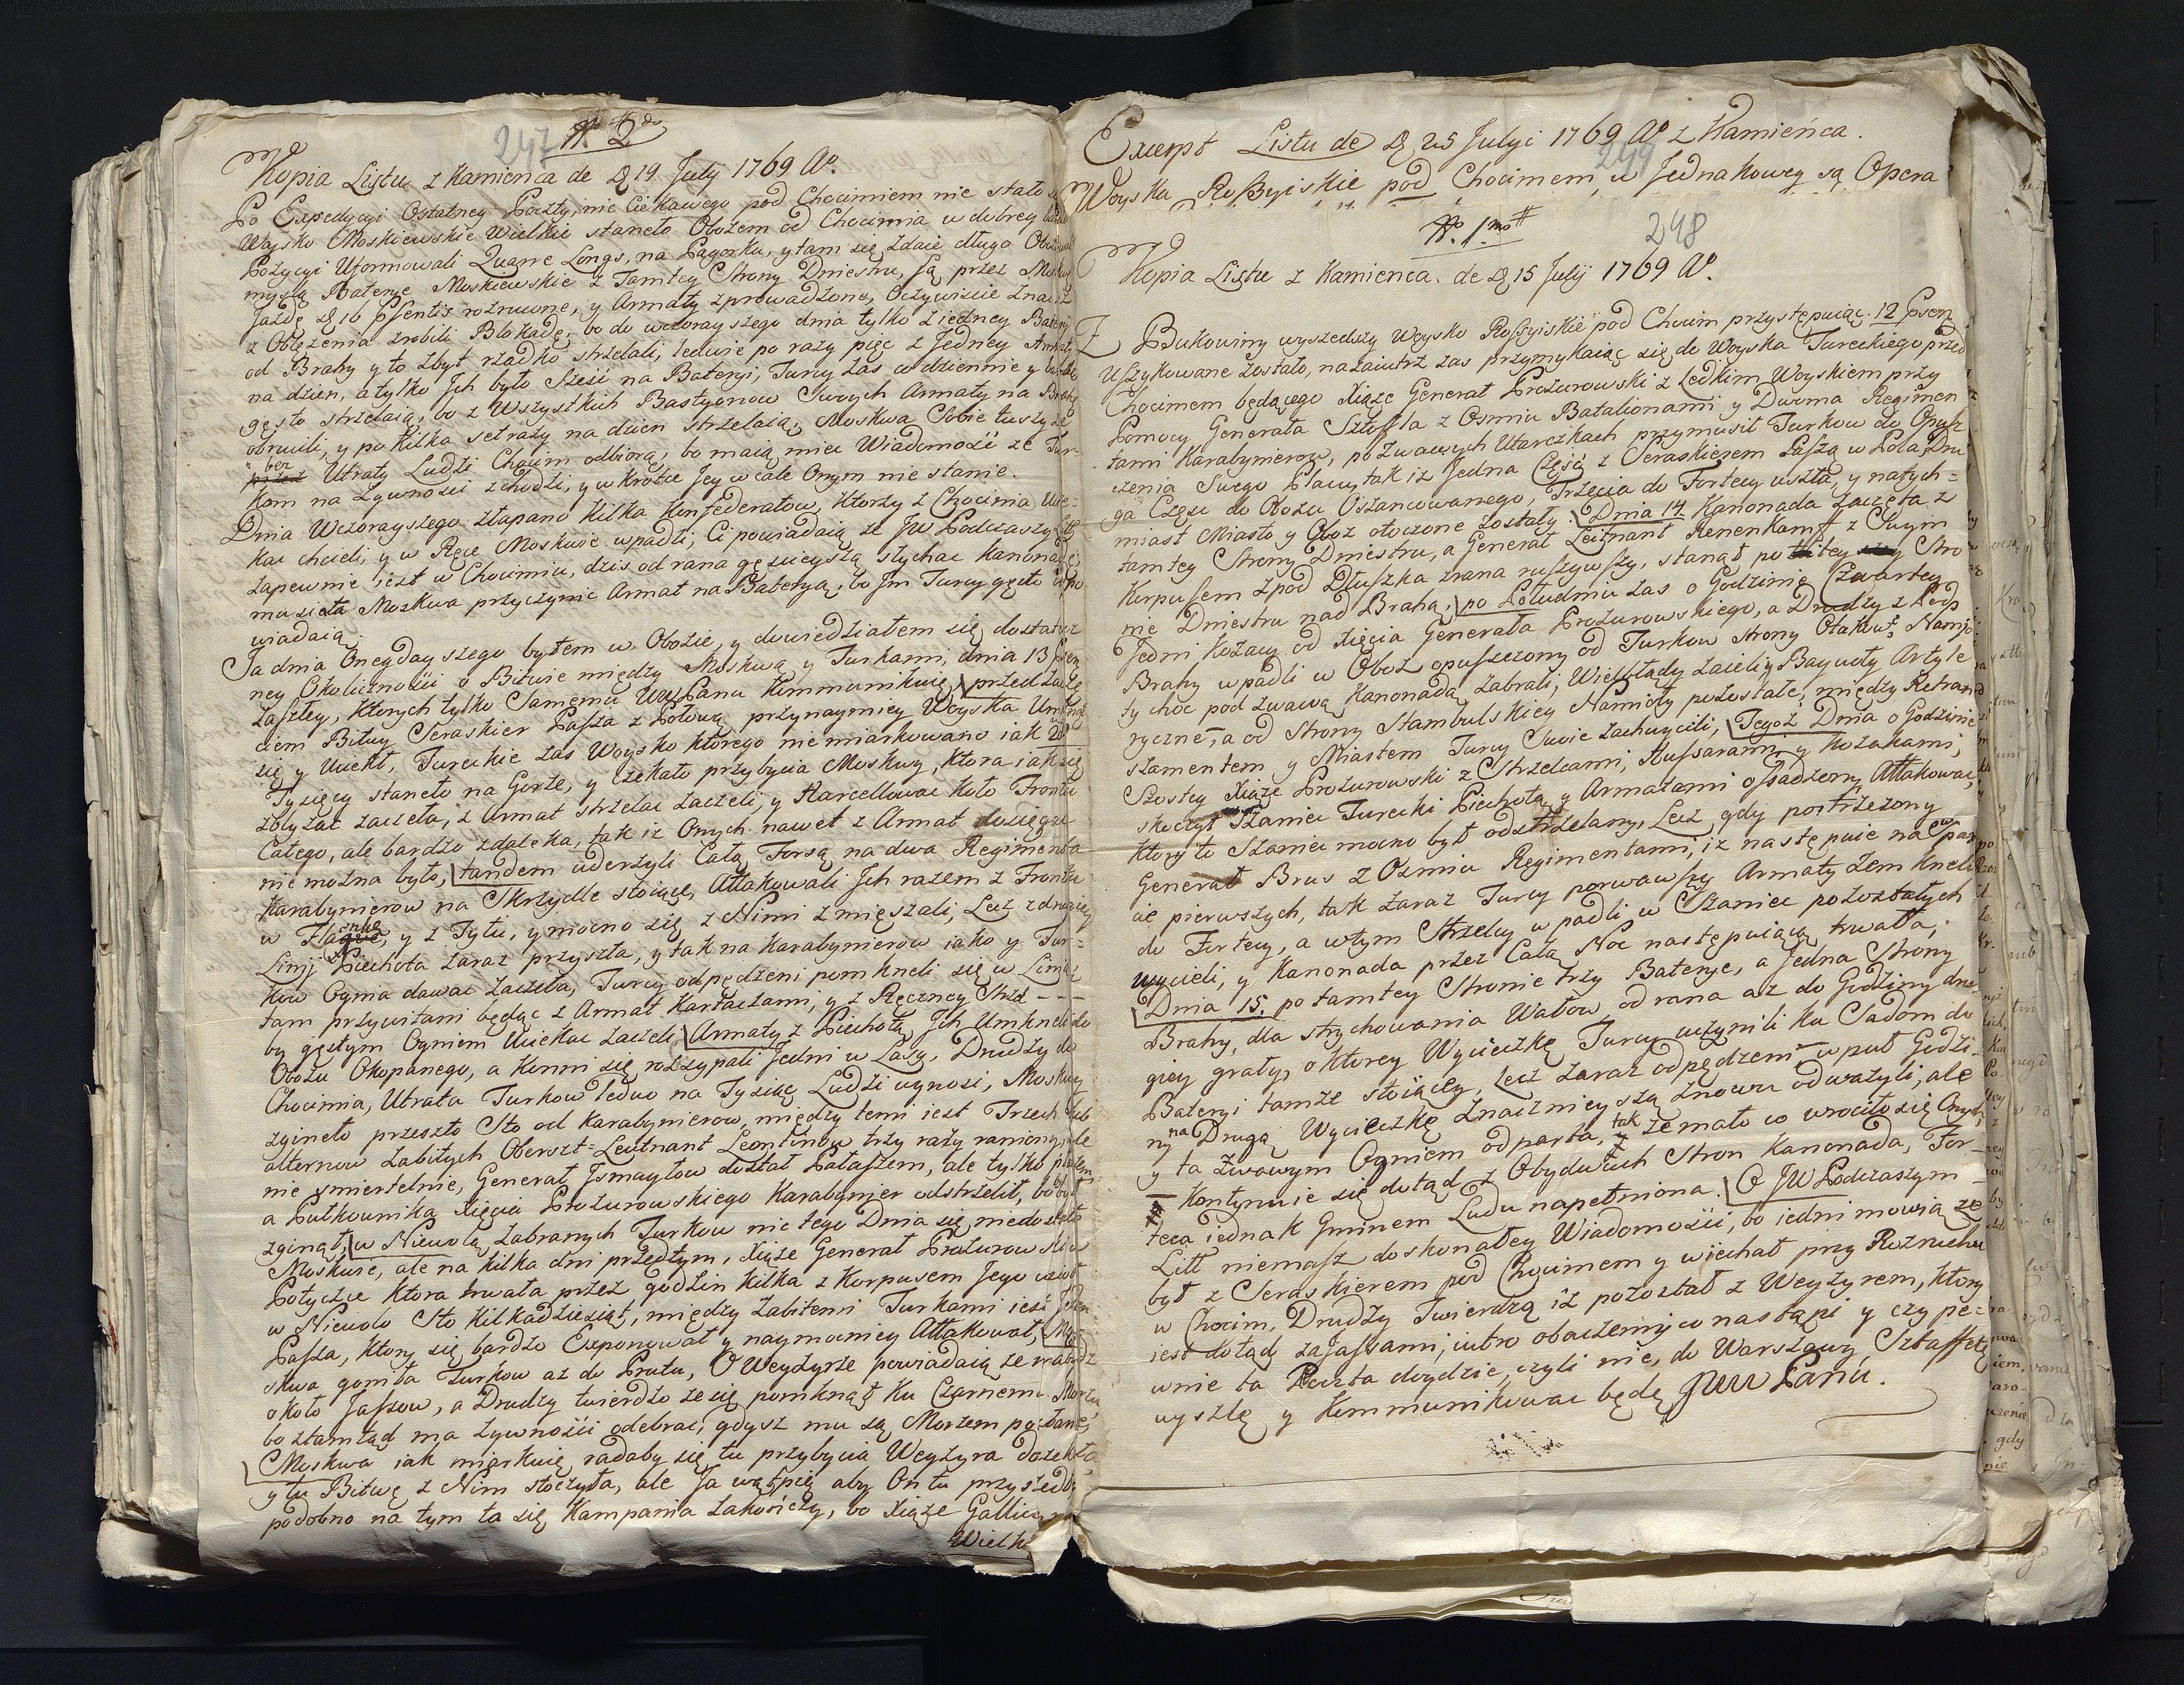 247 N. 2do
Kopia Listu z Kamienca de D 19 July 1769 Ao.
Po Expedycyi Ostatney Poczty, nic Ciekawego pod Chocimiem nie stało
Woysko Moskiewskie Wielkie staneło Obozem od Chocimia w dobrey
Pozycyi Uformowali Quarre Longs, na Pagorku, y tam się zdaie długo
myslą Baterye Moskiewskie z Tamtey Strony Dniestru, są przez
Jazdę D 16 Psentis rozrucone, y Armaty zprowadzone, Oczywiście
z Oblężenia zrobili Blokadę, bo do wczorayszego dnia tylko z iedney
od Brahy y to zbyt rzadko strzelali, ledwie po razy pięc z Jedney
na dzien, a tylko Jch było Sześć na Bateryi, Turcy zas codziennie y
gęsto strzelaią, bo z Wszystkich Bastyonow Swych Armaty na
obrucili, y po kilka set razy na dzien strzelaią, Moskwa Sobie tuszy że
bez Utraty Ludzi Chocim odbiorą, bo maią miec Wiadomość ze Tur-
kom na Zywnosci zchodzi, y w krotce Jey wcale Onym nie stanie.
Dnia Wczorayszego złapano kilka Konfederatow, ktorzy z Chocimia Ucie-
kac chcieli, y w Ręce Moskwie wpadli, Ci powiadaią ze JW Podczaszy
zapewnie iest w Chocimiu, dzis od rana gęściejszą słychac kanonadę,
musiała Moskwa przyczynic Armat na Bateryą, bo Jm Turcy gęsto
wiadaią.
Ja dnia Onegdayszego byłem w Obozie, y dowiedziałem się dostatecz
ney Okolicznosci o Bitwie między Moskwą y Turkami, dnia 13
zaszłey, ktorych tylko Samemu WPanu Kommunikuię, przed
ciem Bitwy Seraskier Pasza z Połową przynaymniey Woyska
się y Uciekł, Tureckie zas Woysko ktorego nie miarkowano iak 20
Tysięcy staneło na Gorze, y czekało przybycia Moskwy, ktora iak się
zblyżac zaczeła, z Armat strzelac zaczeli, y Harcellowac koło Frontu
Całego, ale bardzo zdaleka, tak iz Onych nawet z Armat dosięgac
nie można było, tandem uderzyli Całą Forsą na dwa Regimenta
Karabynierow na Skrzydle stoiące, Attakowali Jch razem z Frontu
w Flankę, y z Tyłu, y mocno się z Nimi zmięszali, Lecz z drugiey
Linij Piechota zaraz przyszła, y tak na Karabynierow iako y Tur-
kow Ognia dawac zaczeła, Turcy odpędzeni pomkneli się w Linie
tam przywitani będąc z Armat kartaczami, y z Ręczney Strzel
by gęstym Ogniem Uciekac zaczeli, Armaty z Piechotą Jch Umkneli do
Obozu Okopanego, a konni się rozsypali Jedni w Lasy, Drudzy do
Chocimia, Utrata Turkow ledwo na Tysiąc Ludzi wynosi, Moskwy
zgineło przeszło Sto od Karabynierow, między temi iest Trzech Sub
alternow zabitych Oberszt-Leutnant Leontinow trzy razy raniony, ale
nie smiertelnie, Generał Jsmayłow dostał Pałaszem, ale tylko
a Pułkownika Xięcia Prozorowskiego Karabynier odstrzelił, bo był
zginął, w Niewolą zabranych Turkow nic tego Dnia się niedostało
Moskwie, ale na kilka dni przedtym, Xiąże Generał Prozorowski w
Potyczce ktora trwała przez godzin kilka z Korpusem Jego
w Niewolo Sto kilkadziesiąt, między zabitemi Turkami iest Jeden
Pasza, ktory się bardzo Exponował y naymocniey Attakował, Mo
skwa goniła Turkow az do Prutu, O Weyzyrze powiadaią ze
około Jassow, a Drudzy twierdzo ze się pomknął ku Czarnemu Morzu
bo ztamtąd ma zywności odebrac, gdysz mu są Morzem posłane,
Moskwa iak miarkuię radaby się tu przybycia Wezyra doczekała,
y tu Bitwę z Nim stoczyła, ale Ja wątpię aby On tu przyszedł,
podobno na tym ta się Kampania zakończy, bo Xiąze Gallicyn
Wielki
Excerpt Listu de D 25 Julyi 1769 Ao z Kamieńca.
249
Woyska Rossyiskie pod Chocimem, w Jednakowey są Opera
N. 1mo 248
Kopia Listu z Kamienca. de D 15 Julij 1769 Ao.
Z Bukowiny wyszedszy Woysko Rossyiskie pod Chocim przystępuiąc. 12 Psen
Uszykowane zostało, nazaiutrz zas przymykaiąc się do Woyska Tureckiego przed
Chocimem będącego Xiąze Generał Prozorowski z Ledkim Woyskiem przy
Pomocy Generała Sztoffla z Osmiu Batalionami y Dwoma Regimen
tami Karabynierow, po zwawych Utarczkach przymusił Turkow do Opusz
czenia Swego Placu, tak iz Jedna Część z Seraskierem Paszą w Pola, Dru
ga Częsc do Obozu Oszancowanego, Trzecia do Fortecy uszła, y natych=
miast Miasto y Oboz otoczone zostały. Dnia 14 Kanonada zaczęta z
tamtey Strony Dniestru, a Generał Leitnant Renenkampf z Swym
Korpusem zpod Dłuszka zrana ruszywszy, stanął po tey Stro
nie Dniestru nad Brahą, po Południu zas o Godzinie Czwartey
Jedni Kozacy od Xięcia Generała Prozorowskiego, a Drudzy z Pod
Brahy wpadli w Oboz opuszczony od Turkow strony Otakow, Namio
ty choc pod zwawą Kanonadą zabrali, Wielbłądy zaieli y Bagnety Artyle
ryczne, a od strony Stambulskiey Namioty pozostałe, między Retran
szamentem y Miastem Turcy Swoie zachwycili, Tegoż Dnia o Godzinie
Szostey Xiąże Prozorowski z Strzelcami, Hussarami y Kozakami,
skoczył Szaniec Turecki Piechotą y Armatami ossadzony Attakowac,
ktory to Szaniec mocno był odstrzelany, Lecz gdy postrzeżony
Generał Brus z Ozmiu Regimentami, iz następuie na
cie pierwszych, tak zaraz Turcy porwawszy Armaty zemkneli
do Fortecy, a wtym Strzelcy wpadli w Szaniec pozostałych
wycieli, y Kanonada przez Całą Noc następuiącą trwała;
Dnia 15. po tamtey Stronie trzy Baterye, a Jedna Strony
Brahy, dla strychowania Wałow, od rana az do Godziny dru
giey grały, o ktorey Wycieczkę Turcy uczynili ku Sadom do
Bateryi tamże stoiącey, Lecz zaraz odpędzeni w puł Godzi
ny na Drugą Wycieczkę znacznieyszą znowu odważyli, ale
y ta zwawym Ogniem odparta, tak ze mało co wrociło się Onych,
Kontynuie się dotąd z Obydwuch Stron Kanonada, For-
teca iednak Gminem Ludu napełniona. O JW Podczaszym
Litt niemasz doskonałey Wiadomosci, bo iedni mowią ze
był z Seraskierem pod Chocimem y wiechał przy Rozruchu
w Chocim, Drudzy Twierdzą iż pozostał z Weyzyrem, ktory
iest dotąd za Jassami, iutro obaczemy co nastąpi y czy pe=
wnie ta Poczta doydzie, czyli nie, do Warszawy Sztaffetę
wyszlę y Kommunikowac będę JWW Panu.